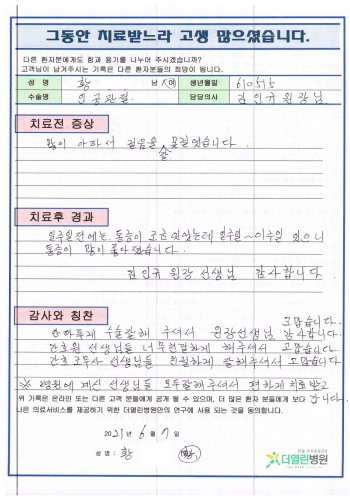 그동안 치료받느라 고생 많으셨습니다.
다른 환자분에게도 힘과 용기를 나누어 주시겠습니까?
고객님이 남겨주시는 기록은 다른 환자분들의 희망이 됩니다.
성 명 황 남 여 생년월일 610515
수술명 인공관절 담당의사 김인규 원장님
치료전 증상
많이 아파서 걸음을 잘 못걸었습니다.
치료후 경과
일주일전에는 통증이 조금 있었는데 일주일~이주일 있으니
통증이 많이 좋아졌습니다.
김인규 원장 선생님 감사합니다
감사와 칭찬
수술잘해 주셔서 원장선생님 감사합니다
고맙습니다
간호원 선생님들 너무친절하게 해주셔서 고맙습니다
간호조무사 선생님들 친절하게 잘해주셔서 고맙습니다
※ 병원에 계신 선생님들 모두잘해주셔서 편하게 치료받고
갑니다
위 기록은 온라인 또는 다른 고객 분들에게 공개 될 수 있으며, 더 많은 환자 분들에게 보다
나은 의료서비스를 제공하기 위한 더열린병원만의 연구에 사용 되는 것을 동의합니다.
2021년 6월 7일
성명: 황
더열린병원